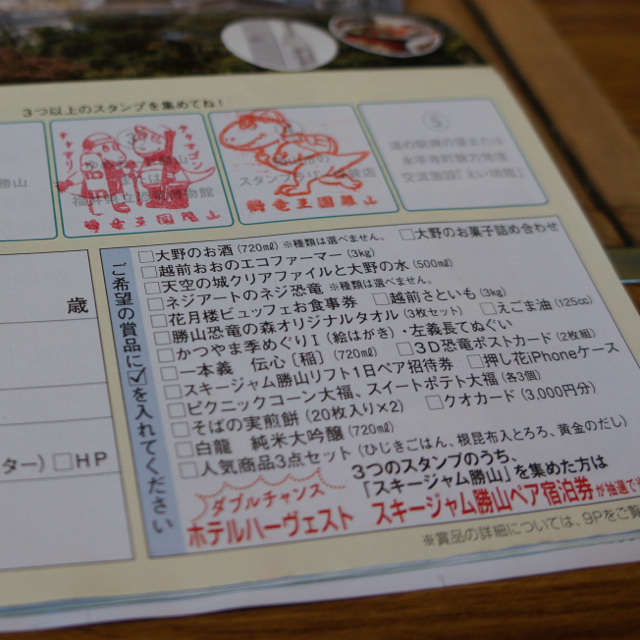 3つ以上のスタンプを集めてね!
勝山
チャマリン チャマゴン
福井県立恐竜博物館
恐竜王国勝山
スタンプラリー 店
恐竜王国勝山
⑤
道の駅禅の里または
永平寺町魅力発信
交流施設「えい坊館」
歳
ター) □HP
ご希望の賞品に☑を入れてください
□大野のお酒(720㎖)※種類は選べません。 □大野のお菓子詰め合わせ
□越前おおのエコファーマー(3kg)
□天空の城クリアファイルと大野の水(500㎖)
□ネジアートのネジ恐竜 ※種類は選べません。
□花月楼ビュッフェお食事券 □越前さといも(3kg)
□勝山恐竜の森オリジナルタオル(3枚セット) □えごま油(125cc)
□かつやま季めぐりⅠ(絵はがき)・左義長てぬぐい
□一本義 伝心[稲](720㎖) □3D恐竜ポストカード(2枚組)
□スキージャム勝山リフト1日ペア招待券 □押し花iPhoneケース
□ピクニックコーン大福、スイートポテト大福(各3個)
□そばの実煎餅(20枚入り×2) □クオカード(3,000円分)
□白龍 純米大吟醸(720㎖)
□人気商品3点セット(ひじきごはん、根昆布入とろろ、黄金のだし)
ダブルチャンス
3つのスタンプのうち、
「スキージャム勝山」を集めた方は
ホテルハーヴェスト スキージャム勝山ペア宿泊券が抽選で
※賞品の詳細については、9Pをご覧